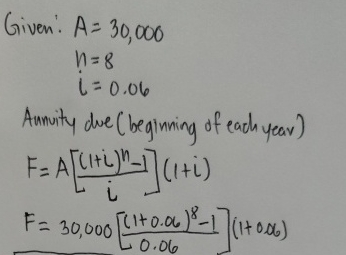 Given: A = 30,000
n = 8
i = 0.06
Annuity due (beginning of each year)
F = A[((1+i)^n - 1)/i](1+i)
F = 30,000[((1+0.06)^8 - 1)/0.06](1+0.06)